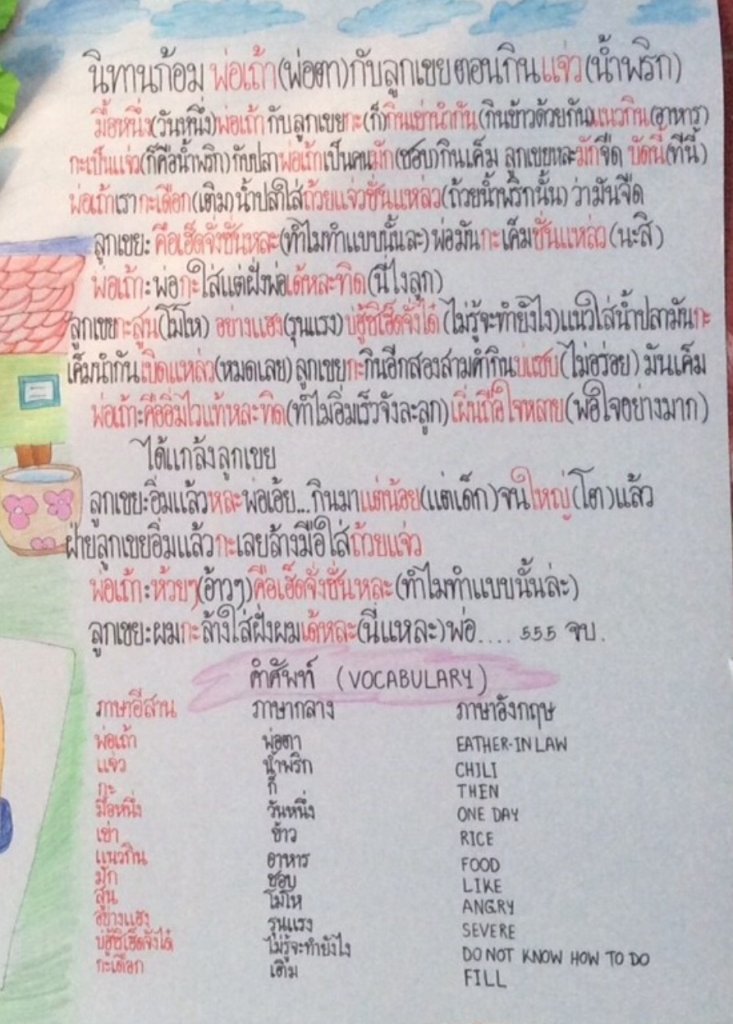 นิทานก้อม พ่อเถ้า(พ่อตา)กับลูกเขยตอนกินแจ่ว(น้ำพริก)
มื้อหนึ่ง(วันหนึ่ง)พ่อเถ้ากับลูกเขยกะ(ก็)กินเข่านำกัน(กินข้าวด้วยกัน)แนวกิน(อาหาร)
กะเป็นแจ่ว(ก็คือน้ำพริก)กับปลาพ่อเถ้าเป็นคนมัก(ชอบ)กินเค็ม ลูกเขยหละมักจืด บัดนี้(ทีนี้)
พ่อเถ้าเรากะเดือก(เติม)น้ำปลาใส่ถ้วยแจ่วซั่นแหล่ว(ถ้วยน้ำพริกนั้น)ว่ามันจืด
ลูกเขย: คือเฮ็ดจั่งซั่นหละ(ทำไมทำแบบนั้นละ)พ่อมันกะเค็มซั่นแหล่ว(นะสิ)
พ่อเถ้า:พ่อกะใส่แต่ฝั่งพ่อเด้หละทิด(นี่ไงลูก)
ลูกเขยกะสูน(โมโห) อย่างแฮง(รุนแรง)บ่ฮู้ซิเฮ็ดจั่งได๋(ไม่รู้จะทำยังไง)แนวใส่น้ำปลามันกะ
เค็มนำกันเบิดแหล่ว(หมดเลย)ลูกเขยกะกินอีกสองสามคำกินบ่แซบ(ไม่อร่อย)มันเค็ม
พ่อเถ้า:คืออิ่มไวแท้หละทิด(ทำไมอิ่มเร็วจังละลูก)เผิ่นถือใจหลาย(พอใจอย่างมาก)
ได้แกล้งลูกเขย
ลูกเขย:อิ่มแล้วหละพ่อเอ้ย...กินมาแต่น้อย(แต่เด็ก)จนใหญ่(โต)แล้ว
ฝ่ายลูกเขยอิ่มแล้วกะเลยล้างมือใส่ถ้วยแจ่ว
พ่อเถ้า:ห้วยๆ(อ้าวๆ)คือเฮ็ดจั่งซั่นหละ(ทำไมทำแบบนั้นล่ะ)
ลูกเขย:ผมกะล้างใส่ฝั่งผมเด้หละ(นี่แหละ)พ่อ.... 555 จบ.
คำศัพท์ (VOCABULARY)
ภาษาอีสาน ภาษากลาง ภาษาอังกฤษ
พ่อเถ้า พ่อตา EATHER-IN LAW
แจ่ว น้ำพริก CHILI
กะ ก็ THEN
มื้อหนึ่ง วันหนึ่ง ONE DAY
เข่า ข้าว RICE
แนวกิน อาหาร FOOD
มัก ชอบ LIKE
สูน โมโห ANGRY
อย่างแฮง รุนแรง SEVERE
บ่ฮู้ซิเฮ็ดจั่งได๋ ไม่รู้จะทำยังไง DO NOT KNOW HOW TO DO
กะเดือก เติม FILL